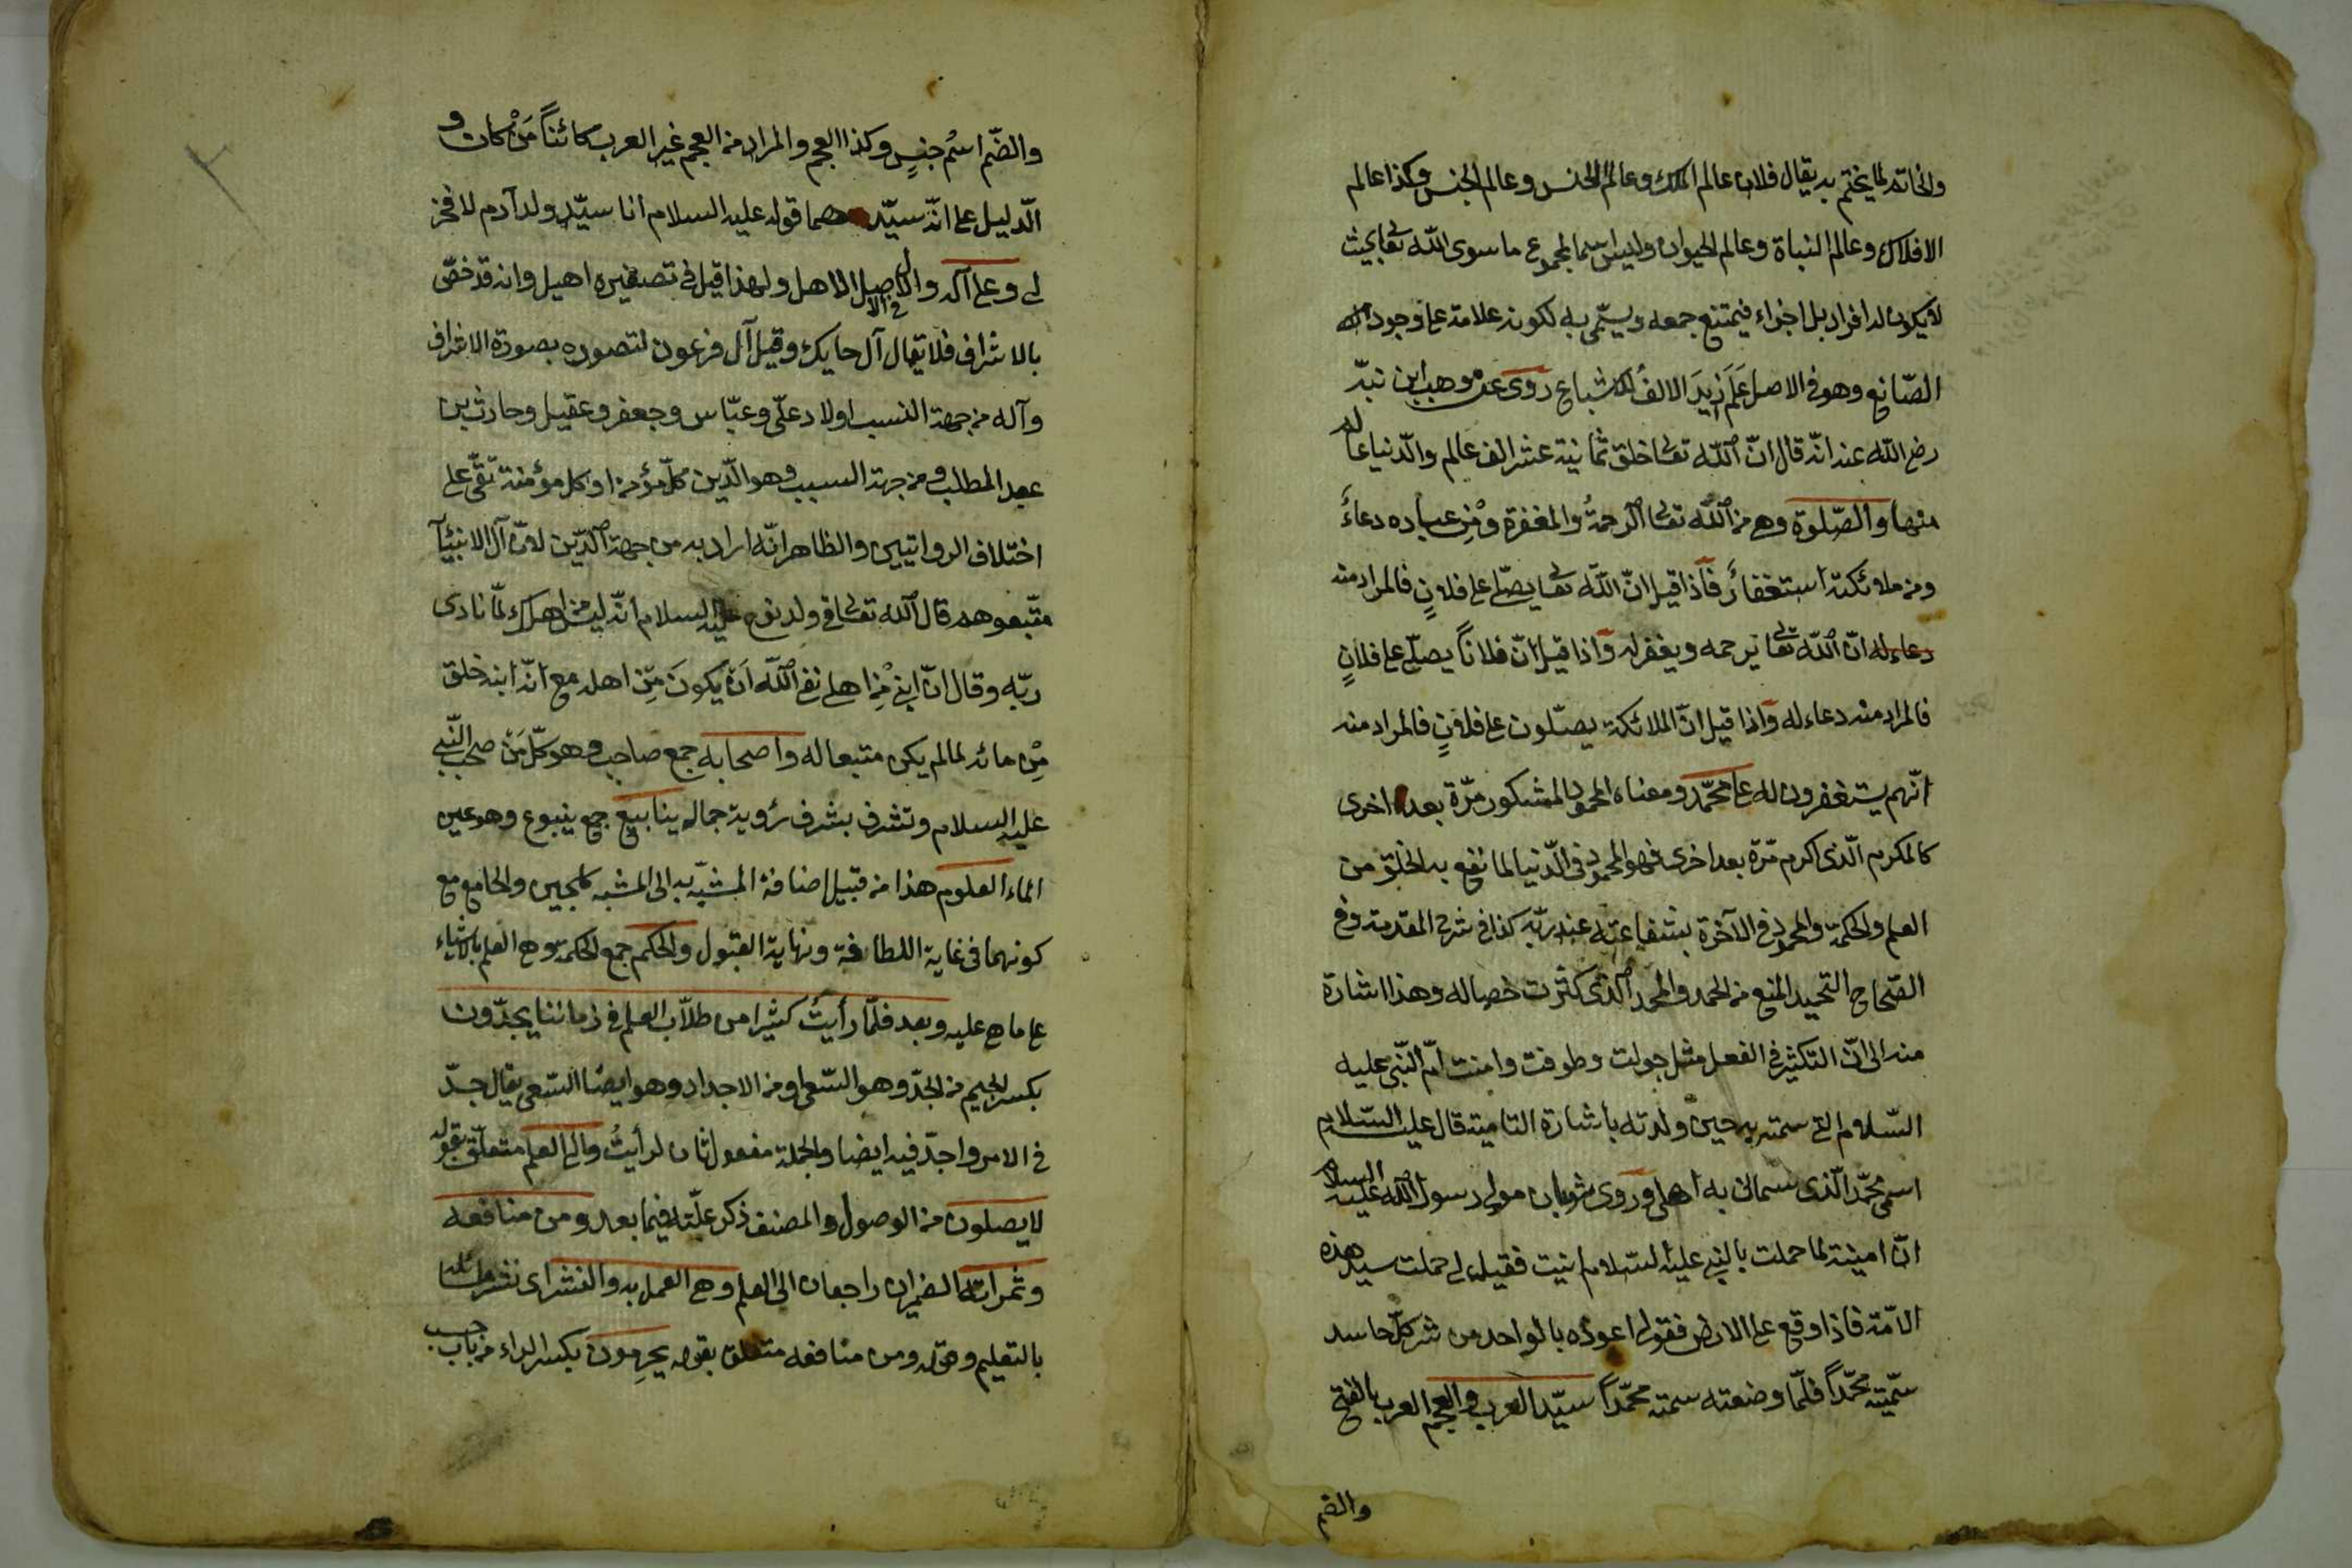 والخاتم لما يختم به يقال فلان عالم الملك وعالم الانس وعالم الجنس وكذا عالم
الافلاك وعالم النباة وعالم الحيوان وليس اسما لمجموع ما سوى الله تعالى بحيث
لا يكون له افراد بل اجزاء فيمتنع جمعه ويسمّى به لكونه علامة على وجود
الصّانع وهو في الاصل عَلَم زيدَ الالفُ للاشباع روى عن وهب ابن منبّه
رضى الله عنه انّه قال انّ الله تعالى خلق ثمانية عشر الف عالم والدّنيا عالم
منها والصّلوة وهى من الله تعالى الرحمةُ والمغفرة ومِن عباده دعاءً
ومن ملائكته استغفارً فاذا قيل انّ الله تعالى يصلّى على فلانٍ فالمراد منه
دعاء له انّ الله تعالى يرحمه ويغفر له واذا قيل انّ فلاناً يصلّى على فلانٍ
فالمراد منه دعاء له واذا قيل انّ الملائكة يصلّون على فلانٍ فالمراد منه
انّهم يستغفرون له على محمّد ومعناه المحمود المشكور مرّة بعد اخرى
كالمكرم الّذى اكرم مرّة بعد اخرى فهو المحمود فى الدّنيا لما نفع به الخلق من
العلم والحكمة والمحمود فى الآخرة بشفاعته عند ربّه كذا فى شرح المقدمة وفى
الصّحاح التحميد ابلغ من الحمد والمحمد الّذى كثرت خصاله وهذا اشارة
منه الى انّ التكثير فى الفعل مثل جولت وطوفت وامنت امّ النّبى عليه
السّلام التى سمته به حين ولدته باشارة قال عليه السّلام
اسمى محمّد الّذى سمانى به اهلى وروى ثوبان مولى رسول الله عليه السلام
انّ امينة لما حملت بالنبى عليه السّلام فقيل لى حملت سيد هذه
الامّة فاذا وقع على الارض فقولى اعوذه بالواحد من شر كلّ حاسد
سمّيته محمّداً فلمّا وضعته سمته محمّداً سيّد العرب والعجم العرب بالفتح
والضم
والضّم اسْم جنسٍ وكذا العجم والمراد من العجم غير العرب كائناً مَنْ كان و
الدّليل على انّه سيّدهما قوله عليه السلام انا سيّد ولد آدم لا فخر
لى وعلى آله والآل فى الاصل الاهل ولهذا قيل فى تصغيره اهيل وانه قد خصّ
بالاشراف فلا يقال آل حايك وقيل آل فرعون لتصوره بصورة الاشراف
وآله من جهة النسب اولاد علّى وعبّاس وجعفر وعقيل وحارث بن
عبد المطلب ومن جهة السبب وهو الدّين كلّ مؤمن او كل مؤمنة تقىّ على
اختلاف الرواتيين والظاهر انّه اراد به من جهة الدّين لانّ آل الانبيآ
متّبعوهم قال الله تعالى فى ولد نوح عليه السلام انّه ليس من اهلك لمّا نادى
ربّه وقال انّ ابنى مِن اهلى نفى الله اَنْ يكونَ مِن اهله مع انّه ابنه خلق
مِن مائه لما لم يكن متبعا له واصحابه جمع صاحب وهو كلّ مَنْ صحب النّبى
عليه السلام وتشرف بشرف رؤية جماله ينابيع جمع ينبوع وهو عين
الماء العلوم هذا من قبيل اضافة المشبّه به الى المشبه كلجين والجامع مع
كونهما فى غاية اللطافة ونهاية القبول والحكم جمع الحكمة وهى العلم بالاشياء
على ما هى عليه وبعد فلمّا رأيتُ كثيرا من طلاّب العلم فى زماننا يجدّون
بكسر الجيم من الجدّ وهو السّعى او من الاجداد وهو ايضا السّعى يقال جدّ
فى الامر واجدّ فيه ايضا والجملة مفعول ثان لرأيتُ والى العلم متعلّق بقوله
لا يصلون من الوصول والمصنف ذكر علّته فيما بعد ومن منافعه
وثمراته الضميران راجعان الى العلم وهى العمل به والنشر اى نشر مسائله
بالتعليم وقوله ومن منافعه متعلق بقوله يحرِمون بكسر الراء من باب حسب